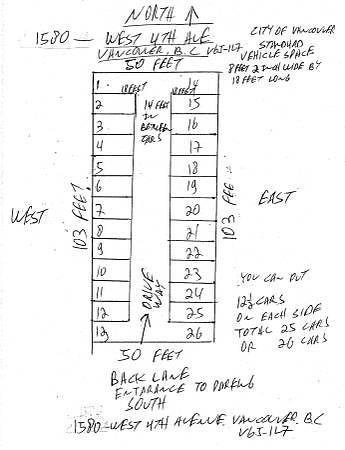 NORTH
1580 — WEST 4TH AVE
VANCOUVER, B.C V6J-1L7
50 FEET
CITY OF VANCOUVER
STANDARD
VEHICLE SPACE
8 FEET 2 INCH WIDE BY
18 FEET LONG
18 FEET
18 FEET
14 FEET
IN
BETWEEN
CARS
1 14
2 15
3 16
4 17
5 18
6 19
7 20
8 21
9 22
10 23
11 24
12 25
13 26
WEST
103 FEET
103 FEE
EAST
DRIVE
WAY
YOU CAN PUT
12½ CARS
ON EACH SIDE
TOTAL 25 CARS
OR 26 CARS
50 FEET
BACK LANE
ENTRANCE TO PARKING
SOUTH
1580-WEST 4TH AVENUE VANCOUVER. B.C
V6J-1L7